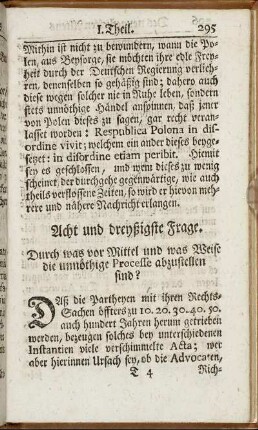 I. Theil. 295
Mithin ist nicht zu bewundern, wann die Po-
len, aus Beysorge, sie möchten ihre edle Frey-
heit durch der Deutschen Regierung verlieh-
ren, denenselben so gehäßig sind; dahero auch
diese wegen solcher nie in Ruhe leben, sondern
stets unnöthige Händel anspinnen, daß jener
von Polen dieses zu sagen, gar recht veran-
lasset worden: Respublica Polona in dis-
ordine vivit; welchem ein ander dieses beyge-
setzet: in disordine etiam peribit. Hiemit
sey es geschlossen, und wem dieses zu wenig
scheinet, der durchgehe gegenwärtige, wie auch
theils verflossene Zeiten, so wird er hievon meh-
rere und nähere Nachricht erlangen.
Acht und dreyßigste Frage.
Durch was vor Mittel und was Weise
die unnöthige Processe abzustellen
sind?
Daß die Partheyen mit ihren Rechts-
Sachen öffters zu 10. 20. 30. 40. 50.
auch hundert Jahren herum getrieben
werden, bezeugen solches bey unterschiedenen
Instantien viele verschimmelte Acta; wer
aber hierinnen Ursach sey, ob die Advocaten,
T 4 Rich-